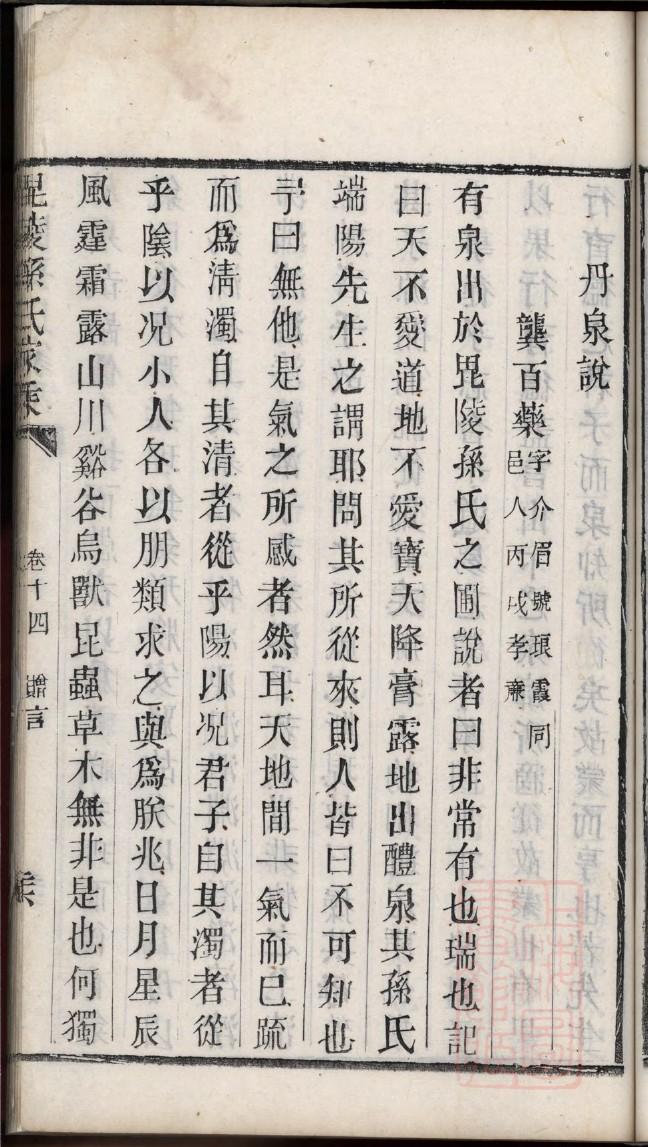 丹泉說
龔百藥字介眉號琅霞同邑人丙戌孝廉
有泉出於毘陵孫氏之圃說者曰非常有也瑞也記
曰天不愛道地不愛寶天降膏露地出醴泉其孫氏
端陽先生之謂耶問其所從來則人皆曰不可知也
予曰無他是氣之所感者然耳天地間一氣而已疏
而爲清濁自其清者從乎陽以况君子自其濁者從
乎陰以况小人各以朋類求之與爲朕兆日月星辰
風霆霜露山川谿谷鳥獸昆蟲草木無非是也何獨
毘陵孫氏家乘
卷十四 贈言